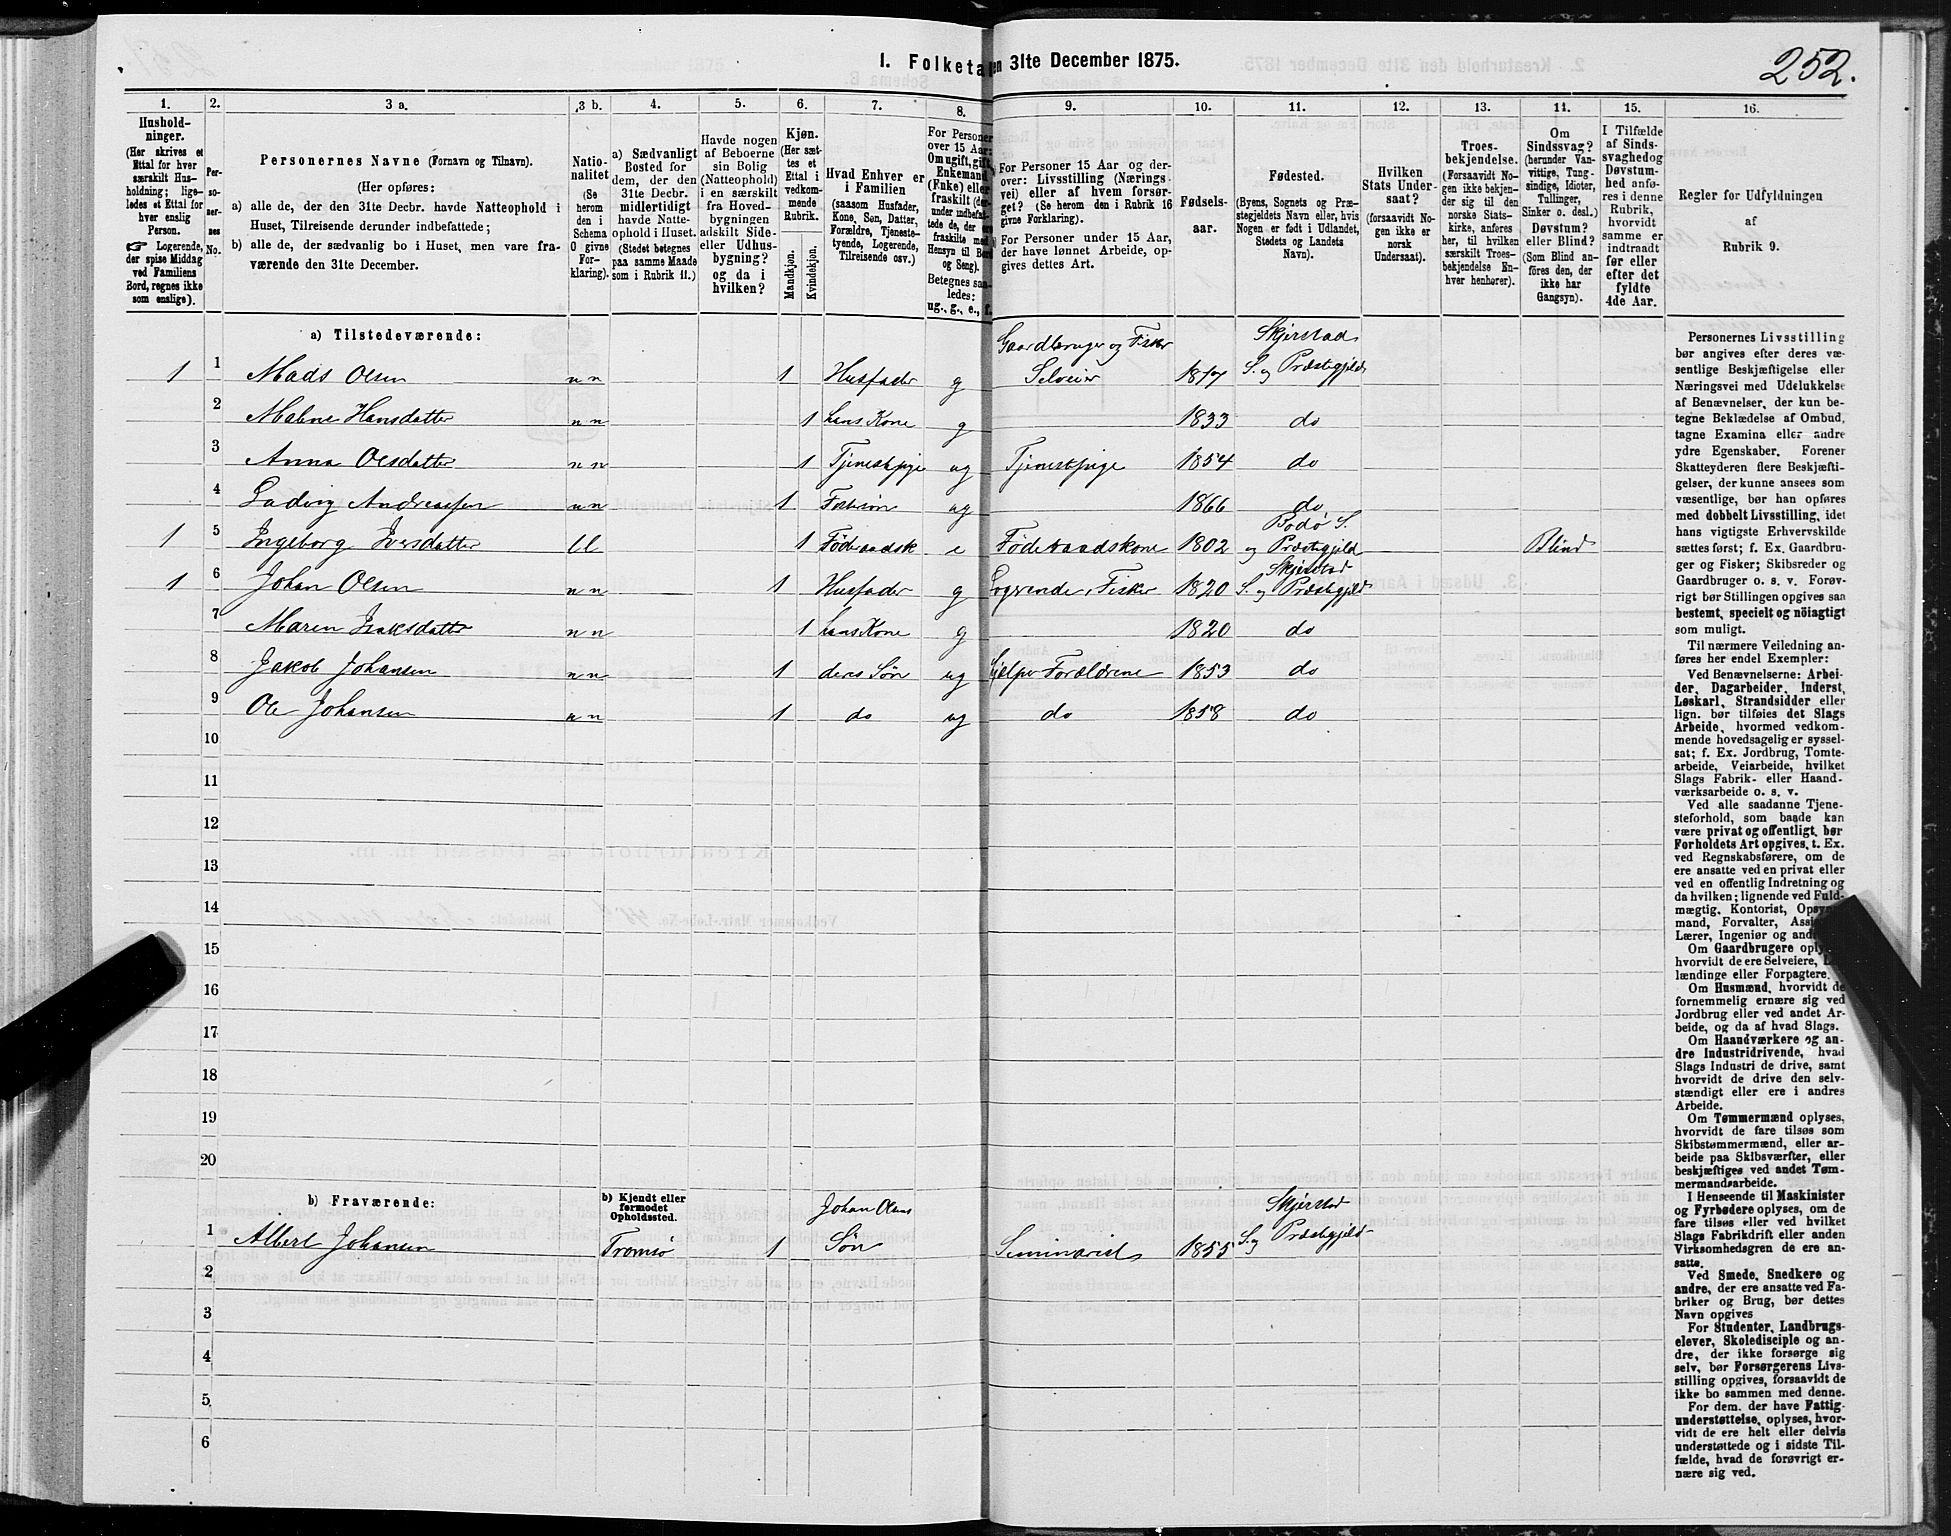 252.
1. Folketa en 31te December 1875.
1. 2. 3 a. 3 b. 4. 5. 6. 7. 8. 9. 10. 11. 12. 13. 14. 15. 16.
Hushold-
ninger.
(Her skrives et
Ettal for hver
særskilt Hus-
holdning; lige-
ledes et Ettal for
hver enslig
Person.
☞ Logerende,
der spise Middag
ved Familiens
Bord, regnes ikke
som enslige).
Per-
so-
ner-
nes
No.
Personernes Navne (Fornavn og Tilnavn).
(Her opføres:
a) alle de, der den 31te Decbr. havde Natteophold i
Huset, Tilreisende derunder indbefattede;
b) alle de, der sædvanlig bo i Huset, men vare fra-
værende den 31te December.
Natio-
nalitet
(Se
herom
den i
Schema
O givne
For-
klaring).
a) Sædvanligt
Bosted for
dem, der den
31te Decbr.
midlertidigt
havde Natte-
ophold i Huset.
(Stedet betegnes
paa samme Maade
som i Rubrik 11.)
Havde nogen
af Beboerne
sin Bolig
(Natteophold)
i en særskilt
fra Hoved-
bygningen
adskilt Side-
eller Udhus-
bygning?
og da i
hvilken?
Kjøn.
(Her sæt-
tes et
Ettal i
vedkom-
mende
Rubrik.
Mandkjøn.
Kvindekjøn.
Hvad Enhver er
i Familien
(saasom Husfader,
Kone, Søn, Datter,
Forældre, Tjeneste-
tyende, Logerende,
Tilreisende osv.)
For Personer
over 15 Aar:
Om ugift, gift,
Enkemand
(Enke) eller
fraskilt (der-
under indbefat-
tede de, der ere
fraskilte med
Hensyn til Bord
og Seng).
Betegnes saa-
ledes:
ug., g., e., f.
For Personer 15 Aar og der-
over: Livsstilling (Nærings-
vei) eller af hvem forsør-
get? (Se herom den i Rubrik 16
givne Forklaring).
For Personer under 15 Aar,
der have lønnet Arbeide, op-
gives dettes Art.
Fødsels-
aar.
Fødested.
(Byens, Sognets og Præ-
stegjeldets Navn eller, hvis
Nogen er født i Udlandet,
Stedets og Landets
Navn).
Hvilken
Stats Under-
saat?
(forsaavidt No-
gen ikke er
norsk
Undersaat).
Troes-
bekjendelse.
(Forsaavidt No-
gen ikke bekjen-
der sig til den
norske Stats-
kirke, anføres
her, til hvilken
særskilt Troes-
bekjendelse En-
hver henhører).
Om
Sindssvag?
(herunder Van-
vittige, Tung-
sindige, Idioter,
Tullinger,
Sinker o. desl.)
Døvstum?
eller Blind?
(Som Blind an-
føres den, der
ikke har
Gangsyn).
I Tilfælde
af Sinds-
svaghed og
Døvstum-
hed anfø-
res i denne
Rubrik,
hvorvidt
samme er
indtraadt
før eller
efter det
fyldte
4de Aar.
Regler for Udfyldningen
af
Rubrik 9.
a) Tilstedeværende:
Gaardbruger og Fisker Skjerstad
1 1 Mads Olsen n n 1 Husfader g Selveier 1817 S. og Præstegjeld
2 Malene Hansdatter n n 1 hans Kone g 1833 do
3 Anna Olsdatter n n 1 Tjenestpige ug Tjenestpige 1854 do
4 Ludvig Andreassen n n 1 Fostersøn ug 1866 do
Bodø S.
1 5 Ingeborg Iversdatter ll 1 Føderaadsk e Føderaadskone 1802 og Præstegjeld Blind
Skjerstad
1 6 Johan Olsen n n 1 Husfader g Logerende, Fisker 1820 S. og Præstegjeld
7 Maren Isaksdatter n n 1 hans Kone g 1820 do
8 Jakob Johansen n n 1 deres Søn ug hjelper Forældrene 1853 do
9 Ole Johansen n n 1 do ug do 1858 do
10
11
12
13
14
15
16
17
18
19
20
b) Fraværende:
b) Kjendt eller
formodet
Opholdssted.
Johan Olsens Skjerstad
1 Albert Johansen Tromsø 1 Søn Seminarist 1855 S. og Præstegjeld
2
3
4
5
6
Personernes Livsstilling
bør angives efter deres væ-
sentlige Beskjæftigelse eller
Næringsvei med Udelukkelse
af Benævnelser, der kun be-
tegne Beklædelse af Ombud,
tagne Examina eller andre
ydre Egenskaber. Forener
Skatteyderen flere Beskjæfti-
gelser, der kunne ansees som
væsentlige, bør han opføres
med dobbelt Livsstilling, idet
hans vigtigste Erhvervskilde
sættes først; f. Ex. Gaardbru-
ger og Fisker; Skibsreder og
Gaardbruger o. s. v. Forøv-
rigt bør Stillingen opgives saa
bestemt, specielt og nöiagtigt
som muligt.
Til nærmere Veiledning an-
føres her endel Exempler:
Ved Benævnelserne: Arbei-
der, Dagarbeider, Inderst,
Løskarl, Strandsidder eller
lign. bør tilføies det Slags
Arbeide, hvormed vedkom-
mende hovedsagelig er syssel-
sat; f. Ex. Jordbrug, Tomte-
arbeide, Veiarbeide, hvilket
Slags Fabrik- eller Haand-
værksarbeide o. s. v.
Ved alle saadanne Tjene-
steforhold, som baade kan
være privat og offentligt, bør
Forholdets Art opgives, t. Ex.
ved Regnskabsførere, om de
ere ansatte ved en privat eller
ved en offentlig Indretning og
da hvilken; lignende ved Fuld-
mægtig, Kontorist, Opsyns-
mand, Forvalter, Assi
Lærer, Ingeniør og and
Om Gaardbrugere oply
hvorvidt de ere Selveiere, L
lændinge eller Forpagtere.
Om Husmænd, hvorvidt de
fornemmelig ernære sig ved
Jordbrug eller ved andet Ar-
beide, og da af hvad Slags.
Om Haandværkere og an-
dre Industridrivende, hvad
Slags Industri de drive, samt
hvorvidt de drive den selv-
stændigt eller ere i andres
Arbeide.
Om Tømmermænd oplyses,
hvorvidt de fare tilsøs som
Skibstømmermænd, eller ar-
beide paa Skibsværfter, eller
beskjæftiges ved andet Tøm-
mermandsarbeide.
I Henseende til Maskinister
og Fyrbødere oplyses, om de
fare tilsøs eller ved hvilket
Slags Fabrikdrift eller anden
Virksomhedsgren de ere an-
satte.
Ved Smede, Snedkere og
andre, der ere ansatte ved Fa-
briker og Brug, bør dettes
Navn opgives
For Studenter, Landbrugs-
elever, Skoledisciple og an-
dre, der ikke forsørge sig
selv, bør Forsørgerens Livs-
stilling opgives, forsaavidt de
ikke bo sammen med denne.
For dem, der have Fattig-
understøttelse, oplyses, hvor-
vidt de ere helt eller delvis
understøttede og i sidste Til-
fælde, hvad de forøvrigt er-
nære sig ved.